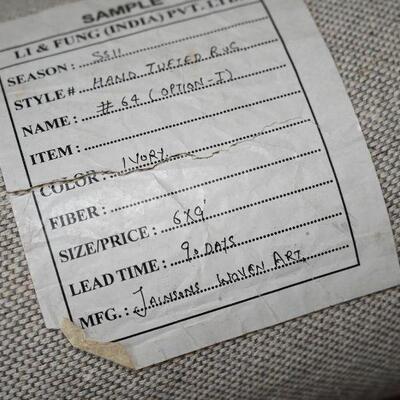 SAMPLE
LI & FUNG (INDIA) PVT. LTD.
SEASON: SS11
STYLE# HAND TUFTED RUG
NAME: #64 (OPTION-I)
ITEM:
COLOR: IVORY
FIBER:
SIZE/PRICE: 6X9'
LEAD TIME: 90 DAYS
MFG.: JAINSONS WOVEN ART